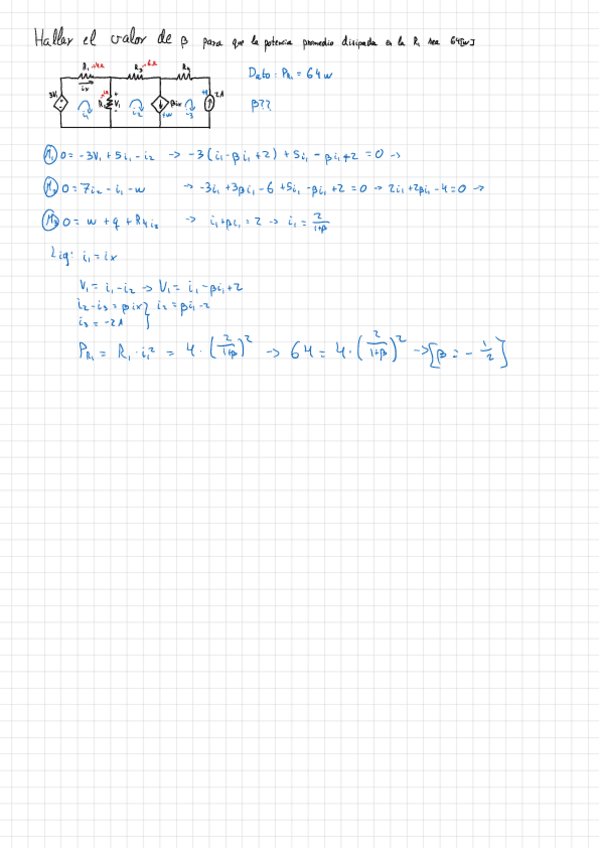 Hallar el valor de β para que la potencia promedio disipada en la R₁ sea 64[W]
R₁ = 4Ω R₃ = 6Ω R₄
ix
3V₁ R₂ = 1Ω + V₁ - βix 2A
i₁ i₂ + w - i₃
Dato: PR₁ = 64 w
β??
M₁ 0 = -3V₁ + 5i₁ - i₂ → -3(i₁ - βi₁ + 2) + 5i₁ - βi₁ + 2 = 0 →
M₂ 0 = 7i₂ - i₁ - w → -3i₁ + 3βi₁ - 6 + 5i₁ - βi₁ + 2 = 0 → 2i₁ + 2βi₁ - 4 = 0 →
M₃ 0 = w + q + R₄i₃ → i₁ + βi₁ = 2 → i₁ = 2/(1+β)
Lig: i₁ = ix
V₁ = i₁ - i₂ → V₁ = i₁ - βi₁ + 2
i₂ - i₃ = βix } i₂ = βi₁ - 2
i₃ = -2A
PR₁ = R₁ · i₁² = 4 · (2/(1+β))² → 64 = 4 · (2/(1+β))² → [β = - 1/2]